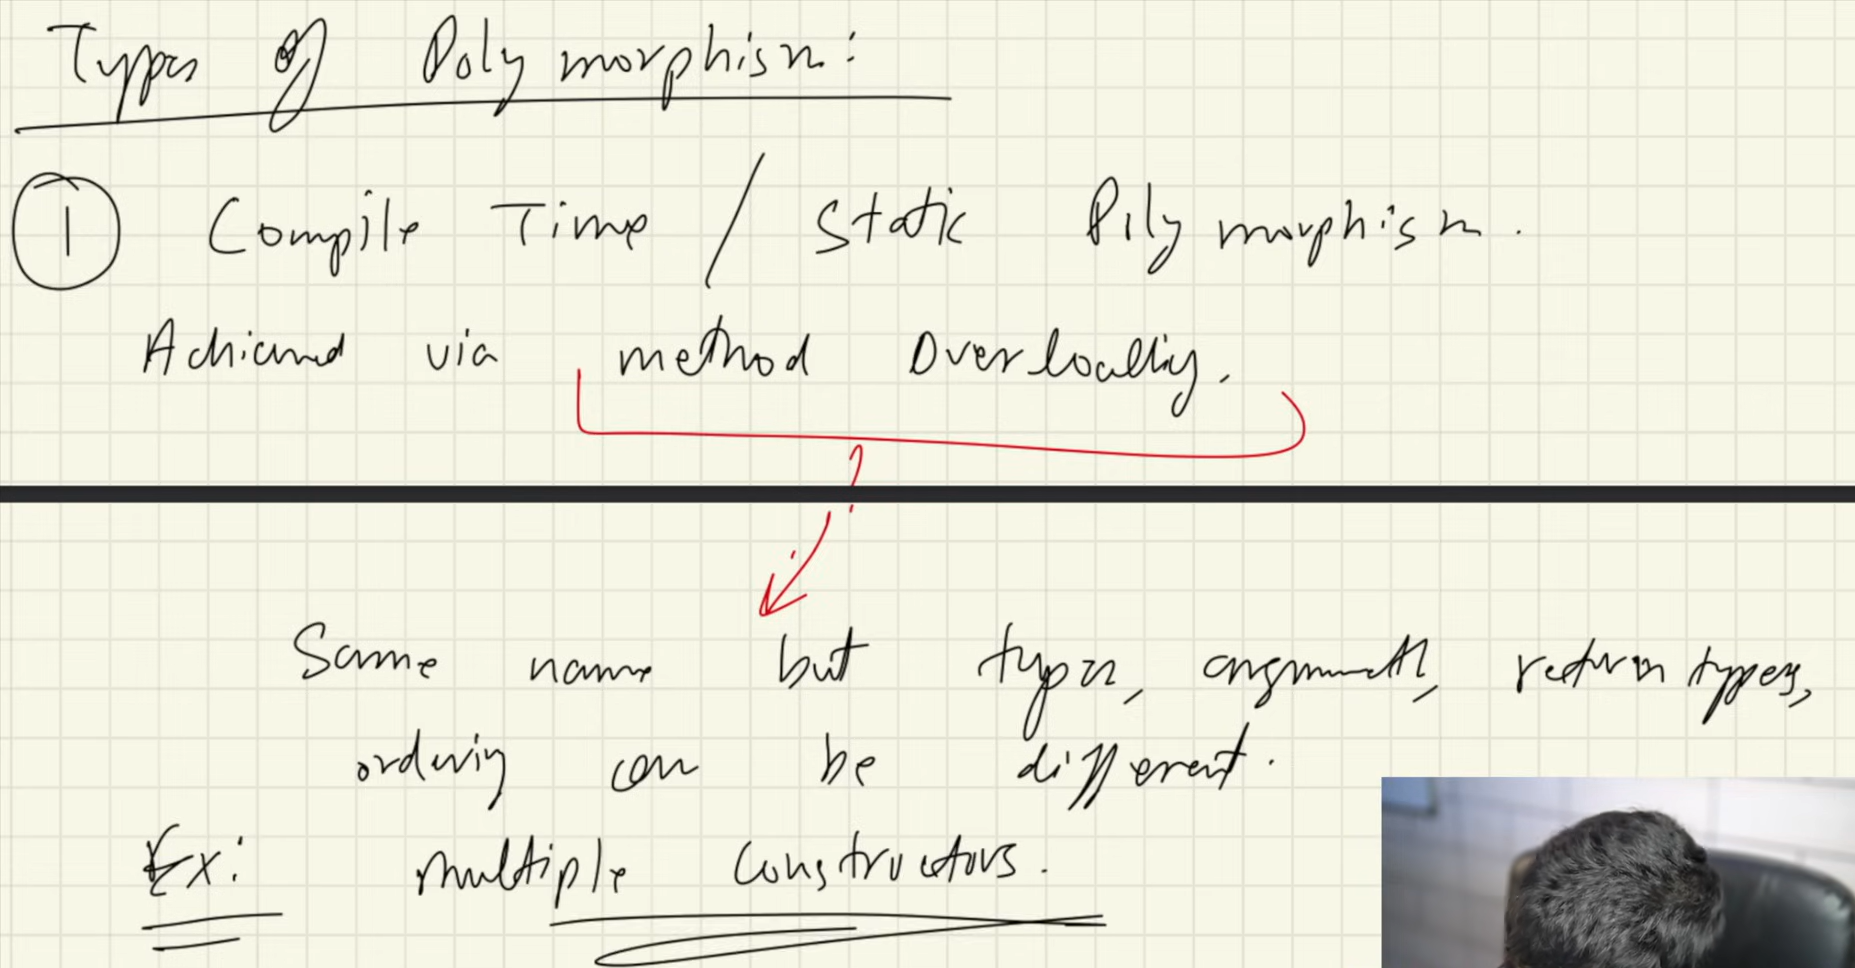 Types of Polymorphism:
1 Compile Time / Static Polymorphism.
Achieved via method Overloading.
Same name but types, arguments, return types,
ordering can be different.
Ex: multiple constructors.